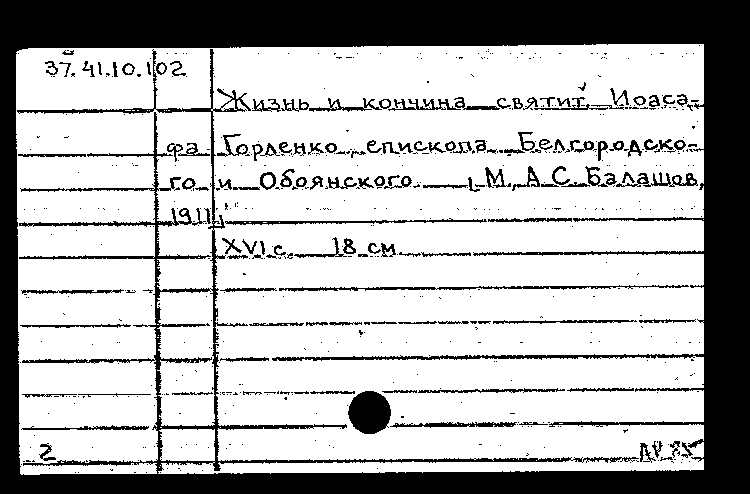 37.41.10.102
Жизнь и кончина святит. Иоаса-
фа Горленко, епископа Белгородско-
го и Обоянского. М., А.С. Балашов,
1911.
XVI с. 18 см.
2